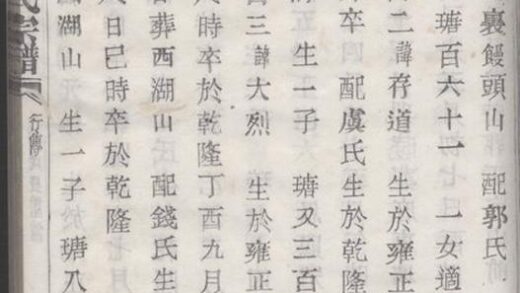 裏饅頭山 配郭氏
瑭百六十一 一女適
二諱存道 生於雍正
卒 配虞氏生於乾隆
生一子 瑭又三百
百三諱大烈 生於雍正
時卒於乾隆丁酉九月
葬西湖山 配錢氏生
日巳時卒於乾隆
湖山 生一子 瑭八
氏宗譜
行傳